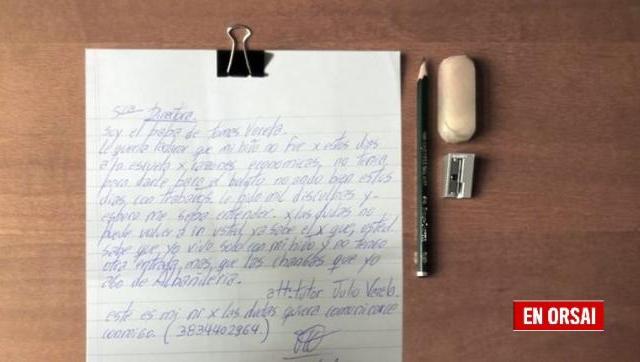 Sra Directora.
Soy el papa de Tomas Varela.
Le queria
que mi hijo no fue x estos dias
a la escuela x razones economicas, no tenia
para darle para el
no ando bien estos
dias, con trabajos. le pido mil disculpas y
espero me sepa entender. x las dudas no
puede volver a ir usted ya sabe el x que, usted
sabe que yo vivo solo con mi hijo y no tengo
otra entrada mas, que las changas que yo
ago de Albañileria.
tutor Julio Varela.
este es mi nr x las dudas quiera comunicarse
conmigo. (3834402964)
EN ORSAI